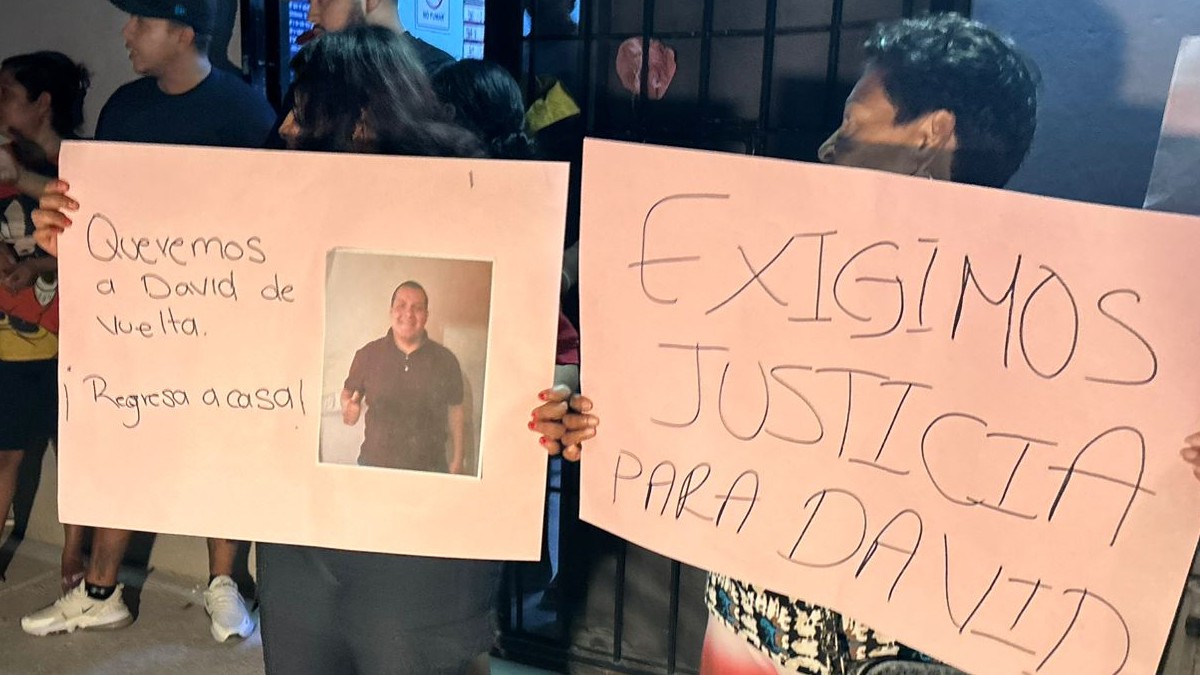 Queremos
a David de
vuelta.
¡Regresa a casa!
EXIGIMOS
JUSTICIA
PARA DAVID
NO FUMAR